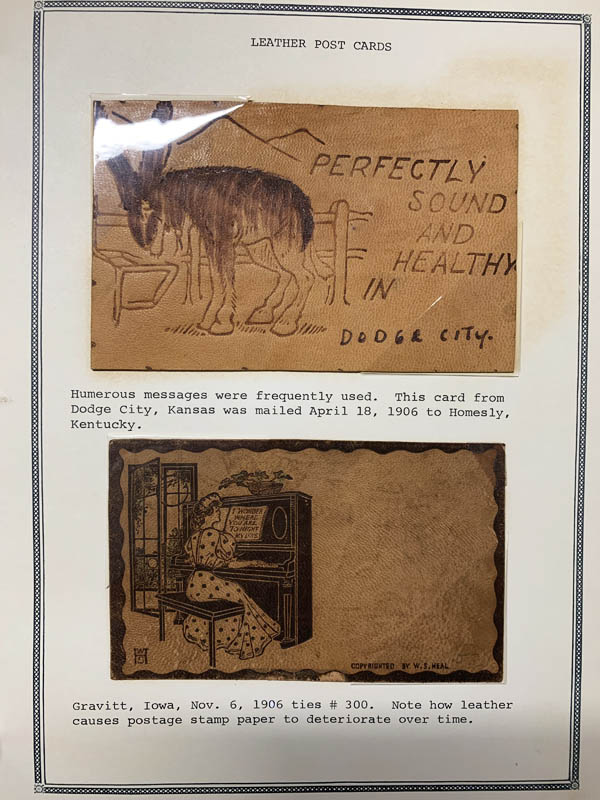 LEATHER POST CARDS
PERFECTLY
SOUND
AND
HEALTHY
IN
DODGE CITY.
Humerous messages were frequently used. This card from
Dodge City, Kansas was mailed April 18, 1906 to Homesly,
Kentucky.
I WONDER
WHERE
YOU ARE
TO NIGHT
MY LOVE
COPYRIGHTED BY W.S. HEAL
Gravitt, Iowa, Nov. 6, 1906 ties # 300. Note how leather
causes postage stamp paper to deteriorate over time.